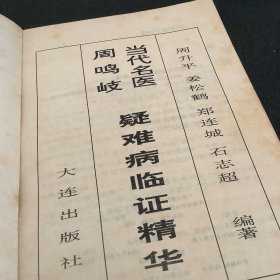 周升平 姜松鹤 郑连城 石志超 编著
当代名医
周鸣岐
疑难病临证精华
大连出版社